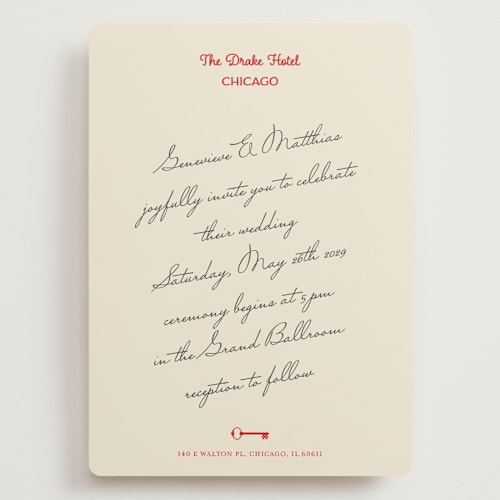 The Drake Hotel
CHICAGO
Genevieve & Matthias
joyfully invite you to celebrate
their wedding
Saturday, May 26th 2029
ceremony begins at 5 pm
in the Grand Ballroom
reception to follow
140 E WALTON PL, CHICAGO, IL 60611